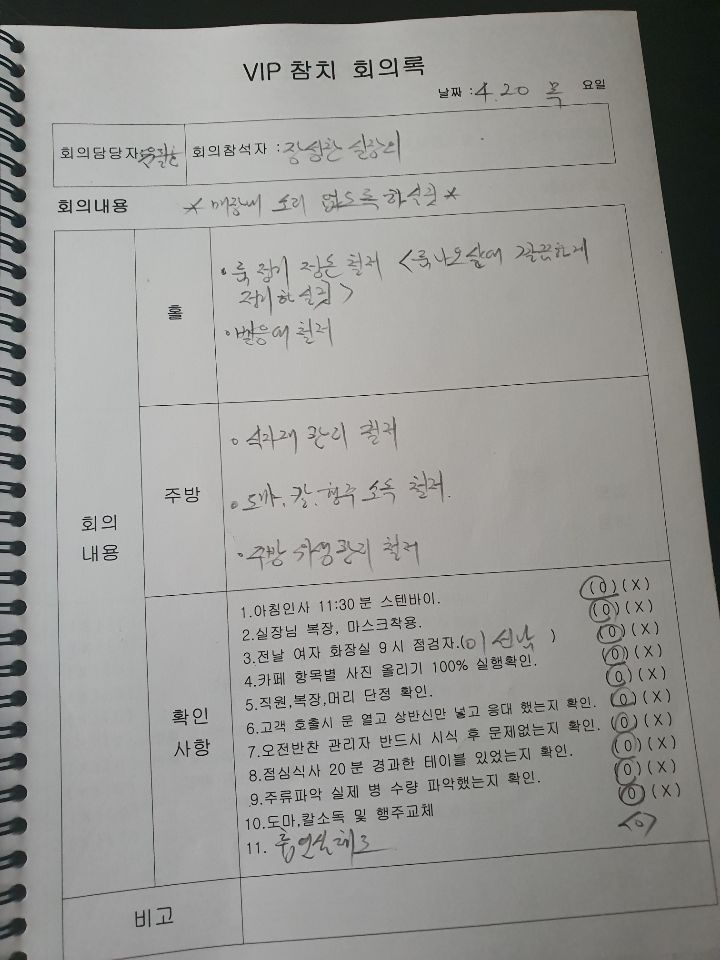 VIP 참치 회의록
날짜 : 4. 20 목 요일
회의담당자 회의참석자 : 장성환 실장외
회의내용 * 매장내 소리 없도록 하실것 *
회의
내용
홀
• 룸 정리 정돈 철저 <룸 나오실때 깔끔하게
정리하실것>
• 벨응대 철저
주방
• 식자재 관리 철저
• 도마, 칼, 행주 소독 철저.
• 주방 위생관리 철저
확인
사항
1.아침인사 11:30분 스텐바이. (O)(X)
2.실장님 복장, 마스크착용. (O)(X)
3.전날 여자 화장실 9시 점검자.( ) (O)(X)
4.카페 항목별 사진 올리기 100% 실행확인. (O)(X)
5.직원,복장,머리 단정 확인. (O)(X)
6.고객 호출시 문 열고 상반신만 넣고 응대 했는지 확인. (O)(X)
7.오전반찬 관리자 반드시 시식 후 문제없는지 확인. (O)(X)
8.점심식사 20분 경과한 테이블 있었는지 확인. (O)(X)
9.주류파악 실제 병 수량 파악했는지 확인. (O)(X)
10.도마,칼소독 및 행주교체 (O)(X)
11. 흡연실 체크 (O)
비고